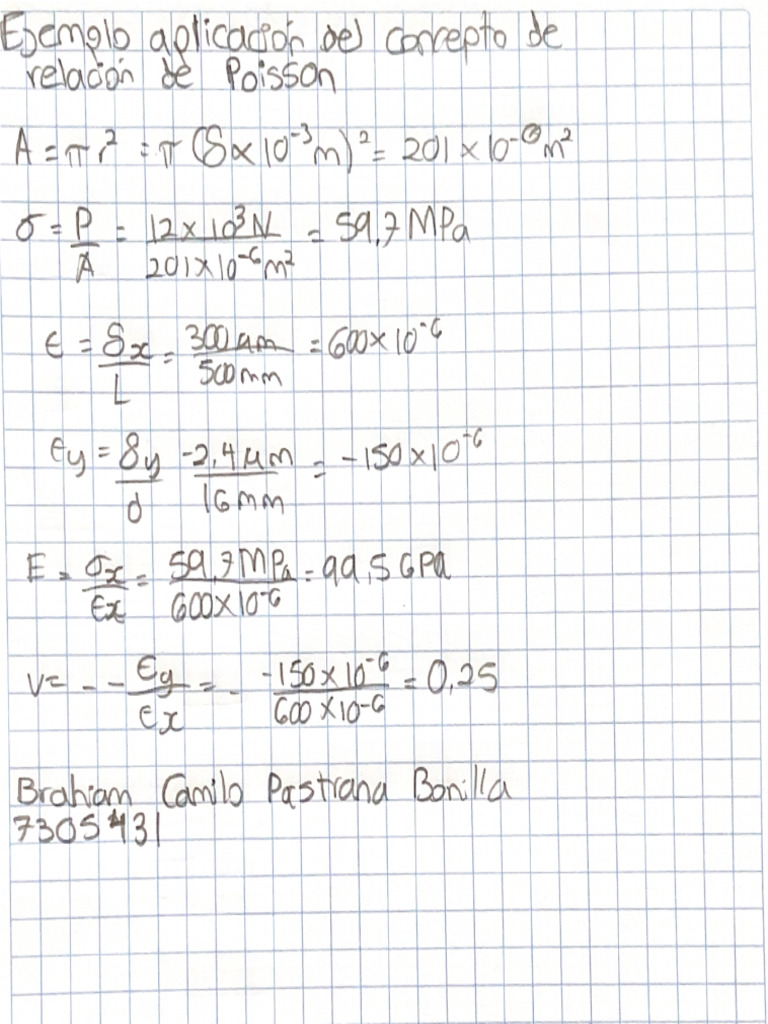 Ejemplo aplicación del concepto de
relación de Poisson
A = π r² = π (8 x 10⁻³ m)² = 201 x 10⁻⁶ m²
σ = P/A = 12 x 10³ N / 201 x 10⁻⁶ m² = 59,7 MPa
ϵ = δx/L = 300 μm / 500 mm = 600 x 10⁻⁶
ϵy = δy/d -2,4 μm / 16 mm = -150 x 10⁻⁶
E = σx/ϵx = 59,7 MPa / 600 x 10⁻⁶ = 99,5 GPa
V = - - ϵy/ϵx = - -150 x 10⁻⁶ / 600 x 10⁻⁶ = 0,25
Brahiam Camilo Pastrana Bonilla
7305431